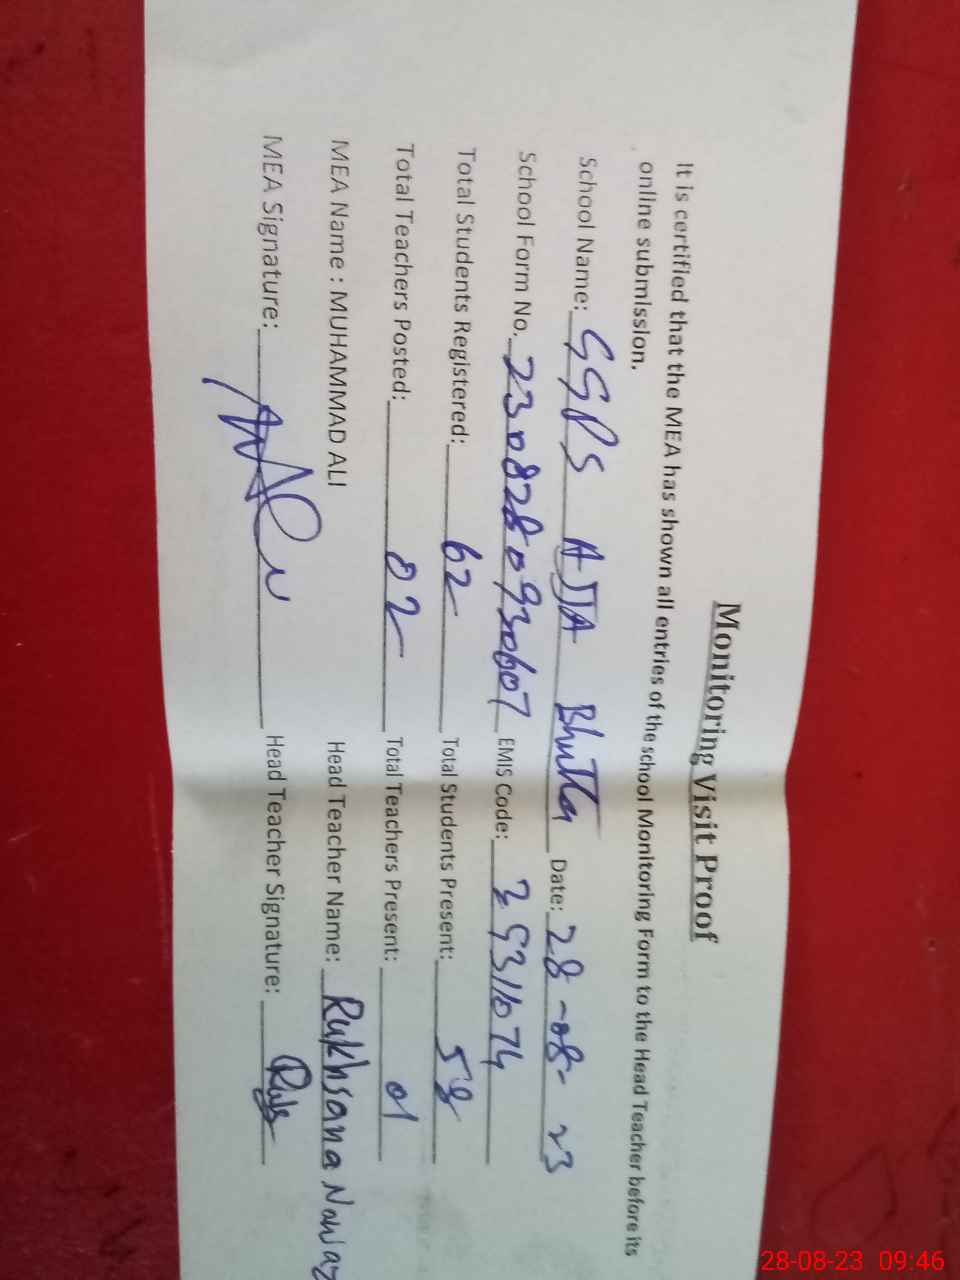 Monitoring Visit Proof
It is certified that the MEA has shown all entries of the school Monitoring Form to the Head Teacher before its
online submission.
School Name: GGPS AJJA Bhutta Date: 28-08-23
School Form No. 230828093607 EMIS Code:
Total Students Registered: 62 Total Students Present: 58
Total Teachers Posted: 02 Total Teachers Present: 01
MEA Name : MUHAMMAD ALI Head Teacher Name: Rukhsana Nawaz
MEA Signature: Head Teacher Signature:
28-08-23 09:46